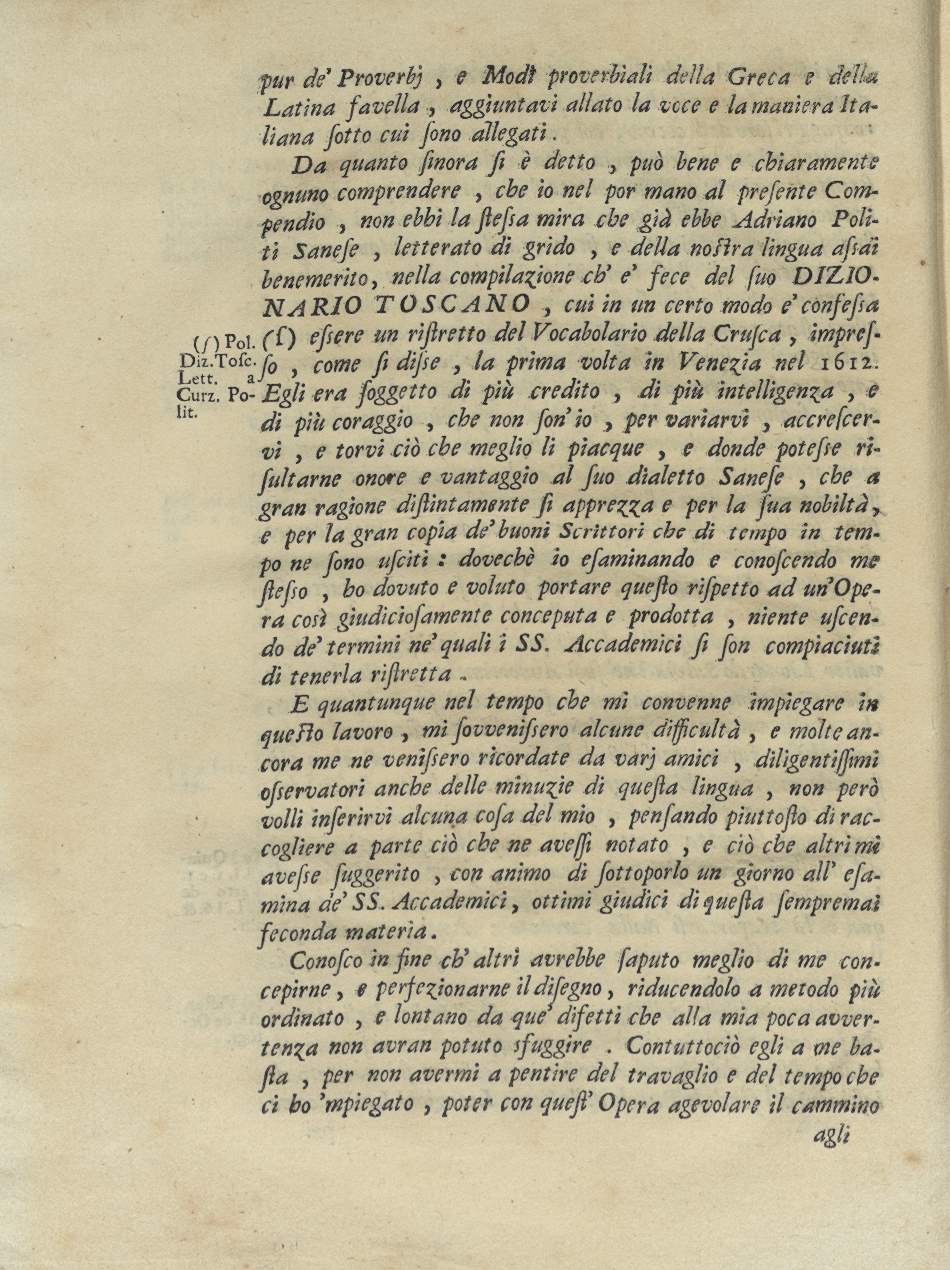 pur de' Proverbj , e Modi proverbiali della Greca e della
Latina favella , aggiuntavi allato la voce e la maniera Ita-
liana ſotto cui ſono allegati .
Da quanto ſinora ſi è detto , può bene e chiaramente
ognuno comprendere , che io nel por mano al preſente Com-
pendio , non ebbi la ſteſsa mira che già ebbe Adriano Poli-
ti Saneſe , letterato di grido , e della noſtra lingua aſsai
benemerito, nella compilazione ch' e' fece del ſuo DIZIO-
NARIO TOSCANO , cui in un certo modo e' confeſsa
(ſ) eſsere un riſtretto del Vocabolario della Cruſca , impreſ-
ſo , come ſi diſse , la prima volta in Venezia nel 1612.
Egli era ſoggetto di più credito , di più intelligenza , e
di più coraggio , che non ſon' io , per variarvi , accreſcer-
vi , e torvi ciò che meglio li piacque , e donde poteſse ri-
ſultarne onore e vantaggio al ſuo dialetto Saneſe , che a
gran ragione diſtintamente ſi apprezza e per la ſua nobiltà,
e per la gran copia de' buoni Scrittori che di tempo in tem-
po ne ſono uſciti : dovechè io eſaminando e conoſcendo me
ſteſso , ho dovuto e voluto portare queſto riſpetto ad un' Ope-
ra così giudicioſamente conceputa e prodotta , niente uſcen-
do de' termini ne' quali i SS. Accademici ſi ſon compiaciuti
di tenerla riſtretta .
E quantunque nel tempo che mi convenne impiegare in
queſto lavoro , mi ſovveniſsero alcune difficultà , e molte an-
cora me ne veniſsero ricordate da varj amici , diligentiſſimi
oſservatori anche delle minuzie di queſta lingua , non però
volli inſerirvi alcuna coſa del mio , penſando piuttoſto di rac-
cogliere a parte ciò che ne aveſſi notato , e ciò che altri mi
aveſse ſuggerito , con animo di ſottoporlo un giorno all' eſa-
mina de' SS. Accademici, ottimi giudici di queſta ſempremai
feconda materia .
Conoſco in fine ch' altri avrebbe ſaputo meglio di me con-
cepirne , e perfezionarne il diſegno , riducendolo a metodo più
ordinato , e lontano da que' difetti che alla mia poca avver-
tenza non avran potuto sfuggire . Contuttociò egli a me ba-
ſta , per non avermi a pentire del travaglio e del tempo che
ci ho 'mpiegato , poter con queſt' Opera agevolare il cammino
agli
(ſ) Pol.
Diz. Toſc.
Lett. a
Curz. Po-
lit.